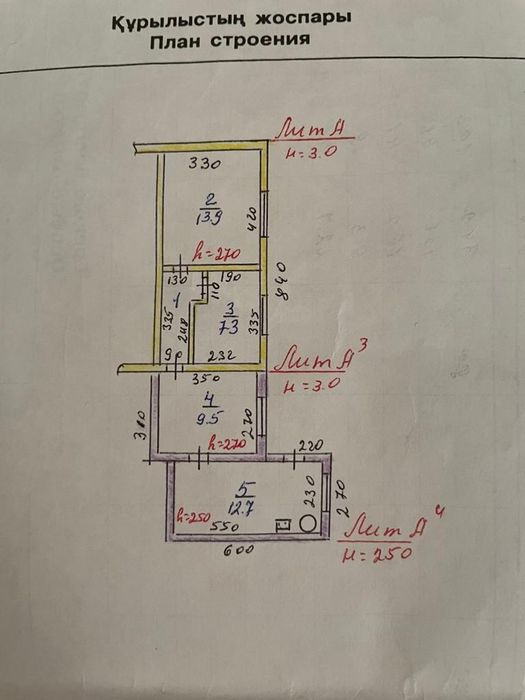 Құрылыстың жоспары
План строения
Лит А
Н=3.0
330
2
13.9
420
h=270
130
190
110
840
1
335
3
7.3
335
248
90
232
Лит А3
Н=3.0
350
4
9.5
270
h=270
220
5
12.7
230
270
h=250
550
600
Лит А4
Н=250